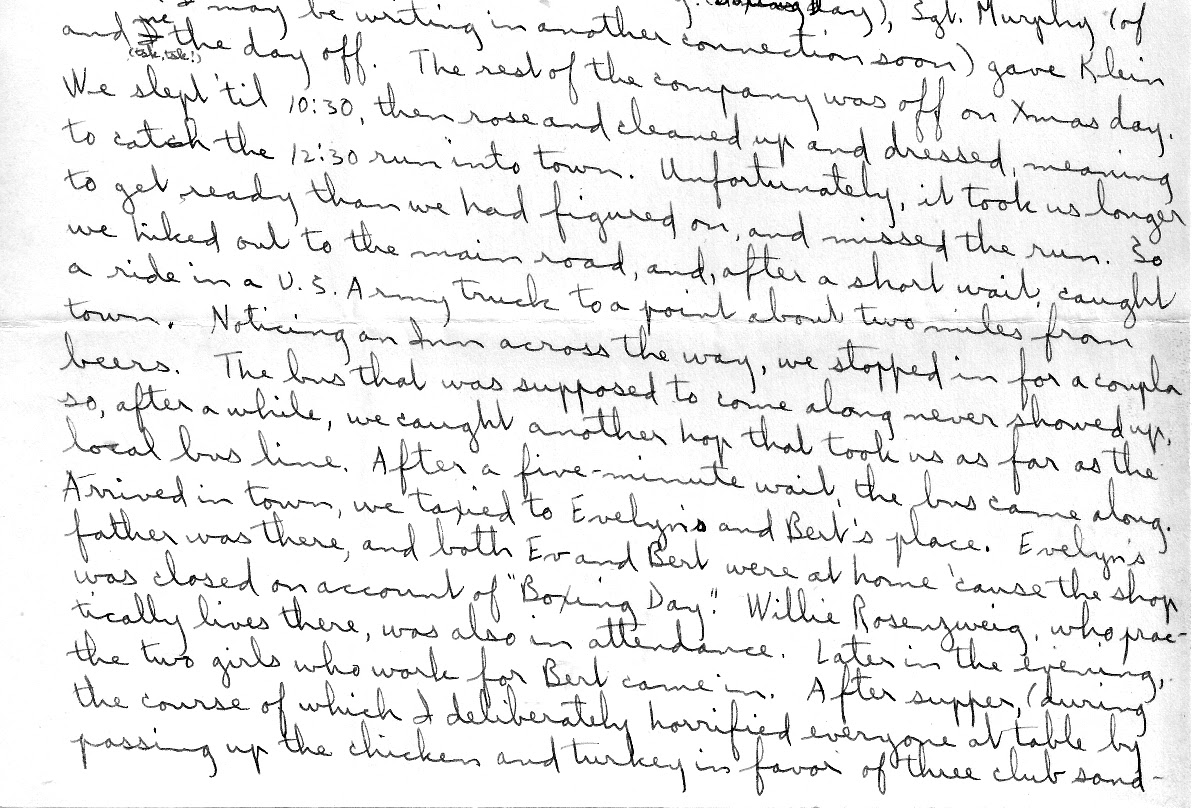 I may be writing in another connection soon) gave Klein
day), Sgt. Murphy (of
and me the day off. The rest of the company was off on Xmas day.
(tsk, tsk!)
We slept 'til 10:30, then rose and cleaned up and dressed, meaning
to catch the 12:30 run into town. Unfortunately, it took us longer
to get ready than we had figured on, and missed the run. So
we hiked out to the main road, and, after a short wait, caught
a ride in a U.S. Army truck to a point about two miles from
town. Noticing an Inn across the way, we stopped in for a coupla
beers. The bus that was supposed to come along never showed up,
so, after a while, we caught another hop that took us as far as the
local bus line. After a five-minute wait, the bus came along.
Arrived in town, we taxied to Evelyn's and Bert's place. Evelyn's
father was there, and both Ev and Bert were at home 'cause the shop
was closed on account of "Boxing Day". Willie Rosenzweig, who prac-
tically lives there, was also in attendance. Later in the evening,
the two girls who work for Bert came in. After supper, (during
the course of which I deliberately horrified everyone at table by
passing up the chicken and turkey in favor of three club sand-